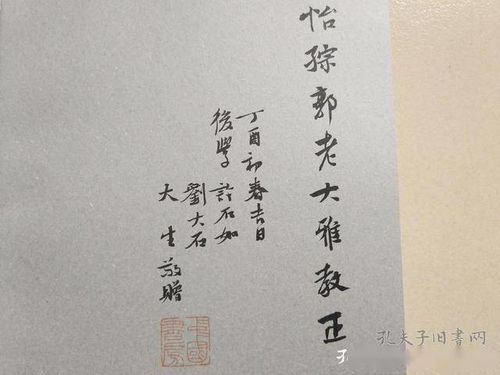 怡琮郭老大雅教正
丁酉初春吉日
後學 許石如
劉大石
大生 敬贈
孔夫子旧书网